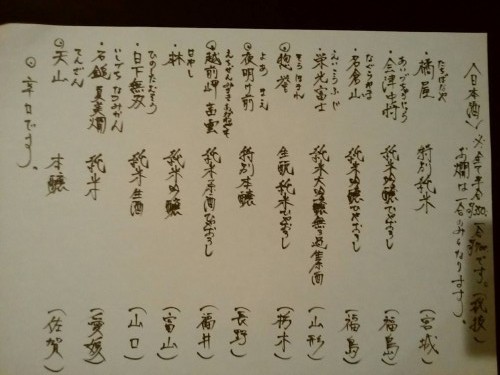 〈日本酒〉 ※全て半合 一合 です。(税抜)
お燗は一合のみとなります)。
たちばなや
・橘屋 特別純米 (宮城)
あいづちゅうじょう
・会津中将 純米吟醸ひやおろし (福島)
なぐらやま
・名倉山 純米吟醸ひやおろし (福島)
えいこうふじ
・栄光富士 純米大吟醸無濾過生原酒 (山形)
そうほまれ
◎惣誉 生酛純米ひやおろし (栃木)
よあ まえ
◎夜明け前 特別本醸 (長野)
えちぜんみさき
◎越前岬 純米原酒ひやおろし (福井)
はやし
・林 純米吟醸 (富山)
ひのしたむそう
・日下無双 純米生酒 (山口)
いしづち
・石鎚 純米 (愛媛)
てんざん
◎天山 本醸 (佐賀)
◎辛口です。